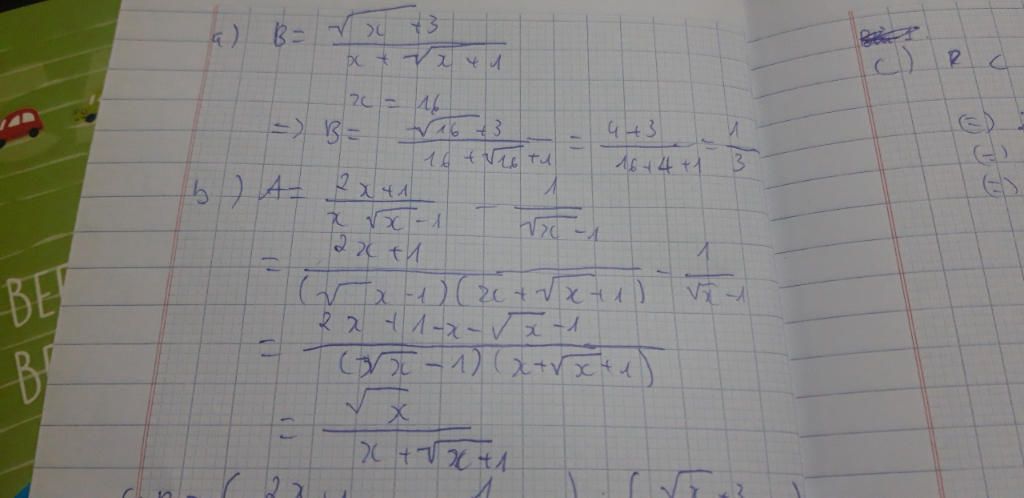 a) B = (√x + 3)/(x + √x + 1)
x = 16
=> B = (√16 + 3)/(16 + √16 + 1) = (4 + 3)/(16 + 4 + 1) = 1/3
b) A = (2x + 1)/(x√x - 1) - 1/(√x - 1)
= (2x + 1)/((√x - 1)(x + √x + 1)) - 1/(√x - 1)
= (2x + 1 - x - √x - 1)/((√x - 1)(x + √x + 1))
= √x/(x + √x + 1)
c)
(=)
(=)
(=)
BE
BE